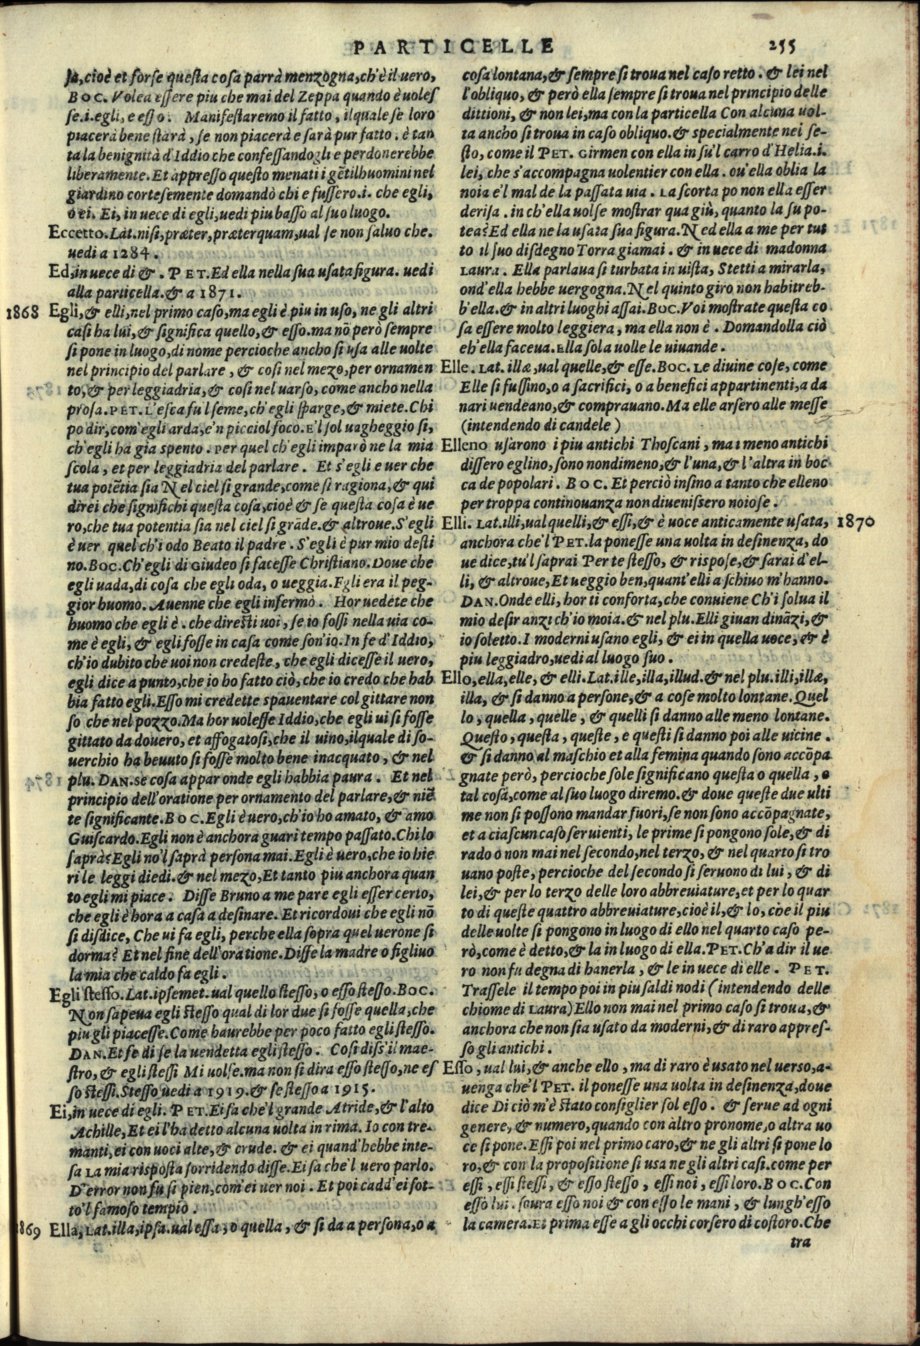 PARTICELLE 255
ſa, cioè et forſe queſta coſa parrà menzogna, ch'è il uero,
BOC. Volea eſſere piu che mai del Zeppa quando è uoleſ
ſe.i.egli, e eſſo. Manifeſtaremo il fatto, ilquale ſe loro
piacerà bene ſtarà, ſe non piacerà e ſarà pur fatto. è tan
ta la benignità d'Iddio che confeſſandogli e perdonerebbe
liberamente. Et appreſſo queſto menati i gẽtilhuomini nel
giardino corteſemente domandò chi e fuſſero.i. che egli,
ò ei. Ei, in uece di egli, uedi piu baſſo al ſuo luogo.
Eccetto. Lat. niſi, præter, præterquam, ual ſe non ſaluo che.
uedi a 1284.
Ed, in uece di &. PET. Ed ella nella ſua uſata figura. uedi
alla particella. & a 1871.
1868 Egli, & elli, nel primo caſo, ma egli è piu in uſo, ne gli altri
caſi ha lui, & ſignifica quello, & eſſo. ma nõ però ſempre
ſi pone in luogo, di nome percioche ancho ſi uſa alle uolte
nel principio del parlare, & coſi nel mezo, per ornamen
to, & per leggiadria, & coſi nel uarſo, come ancho nella
proſa. PET. L'eſca fu l ſeme, ch'egli ſparge, & miete. Chi
po dir, com'egli arda, e'n picciol foco. E'l ſol uagheggio ſi,
ch'egli ha gia ſpento. per quel ch'egli imparò ne la mia
ſcola, et per leggiadria del parlare. Et s'egli e uer che
tua potẽtia ſia Nel ciel ſi grande, come ſi ragiona, & qui
direi che ſignifichi queſta coſa, cioè & ſe queſta coſa è ue
ro, che tua potentia ſia nel ciel ſi grãde. & altroue. S'egli
è uer quel ch'i odo Beato il padre. S'egli è pur mio deſti
no. BOC. Ch'egli di Giudeo ſi faceſſe Chriſtiano. Doue che
egli uada, di coſa che egli oda, o ueggia. Egli era il peg-
gior huomo. Auenne che egli infermò. Hor uedete che
huomo che egli è. che direſti uoi, ſe io foſſi nella uia co-
me è egli, & egli foſſe in caſa come ſon'io. In fe d'Iddio,
ch'io dubito che uoi non credeſte, che egli diceſſe il uero,
egli dice a punto, che io ho fatto ciò, che io credo che hab
bia fatto egli. Eſſo mi credette ſpauentare col gittare non
ſo che nel pozzo. Ma hor uoleſſe Iddio, che egli ui ſi foſſe
gittato da douero, et affogatoſi, che il uino, ilquale di ſo-
uerchio ha beuuto ſi foſſe molto bene inacquato, & nel
plu. DAN. Se coſa appar onde egli habbia paura. Et nel
principio dell'oratione per ornamento del parlare, & niẽ
te ſignificante. BOC. Egli è uero, ch'io ho amato, & amo
Guiſcardo. Egli non è anchora guari tempo paſſato. Chi lo
ſaprà? Egli no'l ſaprà perſona mai. Egli è uero, che io hie
ri le leggi diedi. & nel mezo, Et tanto piu anchora quan
to egli mi piace. Diſſe Bruno a me pare egli eſſer certo,
che egli è hora a caſa a deſinare. Et ricordoui che egli nõ
ſi diſdice, Che ui fa egli, perche ella ſopra quel uerone ſi
dorma? Et nel fine dell'oratione. Diſſe la madre o figliuo
la mia che caldo fa egli.
Egli ſteſſo. Lat. ipſemet. ual quello ſteſſo, o eſſo ſteſſo. BOC.
Non ſapeua egli ſteſſo qual di lor due ſi foſſe quella, che
piu gli piaceſſe. Come haurebbe per poco fatto egli ſteſſo.
DAN. Et fe di ſe la uendetta egli ſteſſo. Coſi diſſ'il mae-
ſtro, & egli ſteſſi Mi uolſe. ma non ſi dira eſſo ſteſſo, ne eſ
ſo ſteſſi. Steſſo uedi a 1919. & ſe ſteſſo a 1915.
Ei, in uece di egli. PET. Ei ſa che'l grande Atride, & l'alto
Achille, Et ei l'ha detto alcuna uolta in rima. Io con tre-
manti, ei con uoci alte, & crude. & ei quand'hebbe inte-
ſa La mia riſpoſta ſorridendo diſſe. Ei ſa che'l uero parlo.
D'error non fu ſi pien, com'ei uer noi. Et poi cadd'ei ſot-
to'l famoſo tempio.
1869 Ella, Lat. illa, ipſa. ual eſſa, o quella, & ſi da a perſona, o a
coſa lontana, & ſempre ſi troua nel caſo retto. & lei nel
l'obliquo, & però ella ſempre ſi troua nel principio delle
dittioni, & non lei, ma con la particella Con alcuna uol-
ta ancho ſi troua in caſo obliquo. & ſpecialmente nel ſe-
ſto, come il PET. Girmen con ella in ſu'l carro d'Helia.i.
lei, che s'accompagna uolentier con ella. ou'ella oblia la
noia e'l mal de la paſſata uia. La ſcorta po non ella eſſer
deriſa. in ch'ella uolſe moſtrar qua giù, quanto la ſu po-
tea? Ed ella ne la uſata ſua figura. Ned ella a me per tut
to il ſuo diſdegno Torra giamai. & in uece di madonna
Laura. Ella parlaua ſi turbata in uiſta, Stetti a mirarla,
ond'ella hebbe uergogna. Nel quinto giro non habitreb-
b'ella. & in altri luoghi aſſai. BOC. Voi moſtrate queſta co
ſa eſſere molto leggiera, ma ella non è. Domandolla ciò
ch'ella faceua. Ella ſola uolle le uiuande.
Elle. Lat. illæ, ual quelle, & eſſe. BOC. Le diuine coſe, come
Elle ſi fuſſino, o a ſacrifici, o a benefici appartinenti, a da
nari uendeano, & comprauano. Ma elle arſero alle meſſe
(intendendo di candele)
Elleno uſarono i piu antichi Thoſcani, ma i meno antichi
diſſero eglino, ſono nondimeno, & l'una, & l'altra in boc
ca de popolari. BOC. Et perciò inſino a tanto che elleno
per troppa continouanza non diueniſſero noioſe.
Elli. Lat. illi, ual quelli, & eſſi, & è uoce anticamente uſata, 1870
anchora che'l PET. la poneſſe una uolta in deſinenza, do
ue dice, tu'l ſaprai Per te ſteſſo, & riſpoſe, & ſarai d'el-
li, & altroue, Et ueggio ben, quant'elli a ſchiuo m'hanno.
DAN. Onde elli, hor ti conforta, che conuiene Ch'i ſolua il
mio deſir anzi ch'io moia. & nel plu. Elli giuan dinãzi, &
io ſoletto. I moderni uſano egli, & ei in quella uoce, & è
piu leggiadro, uedi al luogo ſuo.
Ello, ella, elle, & elli. Lat. ille, illa, illud. & nel plu. illi, illæ,
illa, & ſi danno a perſone, & a coſe molto lontane. Quel
lo, quella, quelle, & quelli ſi danno alle meno lontane.
Queſto, queſta, queſte, e queſti ſi danno poi alle uicine.
& ſi danno al maſchio et alla femina quando ſono accõpa
gnate però, percioche ſole ſignificano queſta o quella, o
tal coſa, come al ſuo luogo diremo. & doue queſte due ulti
me non ſi poſſono mandar fuori, ſe non ſono accõpagnate,
et a ciaſcun caſo ſeruienti, le prime ſi pongono ſole, & di
rado o non mai nel ſecondo, nel terzo, & nel quarto ſi tro
uano poſte, percioche del ſecondo ſi ſeruono di lui, & di
lei, & per lo terzo delle loro abbreuiature, et per lo quar
to di queſte quattro abbreuiature, cioè il, & lo, che il piu
delle uolte ſi pongono in luogo di ello nel quarto caſo pe-
rò, come è detto, & la in luogo di ella. PET. Ch'a dir il ue
ro non fu degna di hauerla, & le in uece di elle. PET.
Traſſele il tempo poi in piu ſaldi nodi (intendendo delle
chiome di Laura) Ello non mai nel primo caſo ſi troua, &
anchora che non ſia uſato da moderni, & di raro appreſ-
ſo gli antichi.
Eſſo, ual lui, & anche ello, ma di raro è uſato nel uerſo, a-
uenga che'l PET. il poneſſe una uolta in deſinenza, doue
dice Di ciò m'è ſtato conſiglier ſol eſſo. & ſerue ad ogni
genere, & numero, quando con altro pronome, o altra uo
ce ſi pone. Eſſi poi nel primo caro, & ne gli altri ſi pone lo
ro, & con la propoſitione ſi uſa ne gli altri caſi. come per
eſſi, eſſi ſteſſi, & eſſo ſteſſo, eſſi noi, eſſi loro. BOC. Con
eſſo lui. ſoura eſſo noi & con eſſo le mani, & lungh'eſſo
la camera. Et prima eſſe a gli occhi corſero di coſtoro. Che
tra